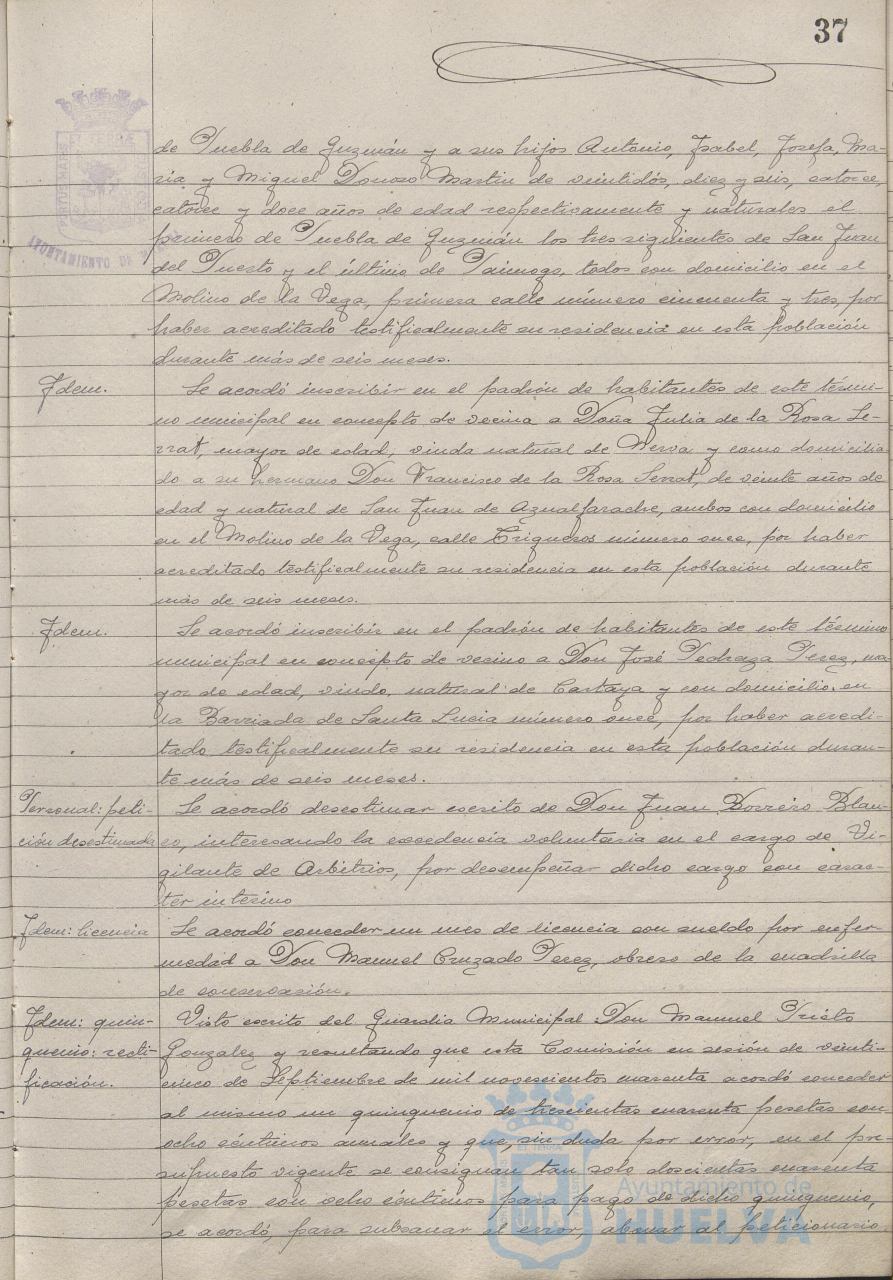 37
de Puebla de Guzmán y a sus hijos Antonio, Isabel, Josefa, Ma-
ria y Miguel Donoso Martin de veintidós, diez y seis, catorce,
catorce y doce años de edad respectivamente y naturales el
primero de Puebla de Guzmán los tres siguientes de San Juan
del Puerto y el último de Paimogo, todos con domicilio en el
Molino de la Vega, primera calle número cincuenta y tres, por
haber acreditado testificalmente su residencia en esta población
durante más de seis meses.
Idem.
Se acordó inscribir en el padrón de habitantes de este térmi-
no municipal en concepto de vecina a Doña Julia de la Rosa Se-
rrat, mayor de edad, viuda natural de Nerva y como domicilia-
do a su hermano Don Francisco de la Rosa Serrat, de veinte años de
edad y natural de San Juan de Aznalfarache, ambos con domicilio
en el Molino de la Vega, calle Trigueros número once, por haber
acreditado testificalmente su residencia en esta población durante
más de seis meses.
Idem.
Se acordó inscribir en el padrón de habitantes de este término
municipal en concepto de vecino a Don José Pedraza Perez, ma-
yor de edad, viudo, natural de Cartaya y con domicilio en
la Barriada de Santa Lucia número once, por haber acredi-
tado testificalmente su residencia en esta población duran-
te más de seis meses.
Personal: peti-
ción desestimada
Se acordó desestimar escrito de Don Juan Borrero Blan-
co, interesando la excedencia voluntaria en el cargo de Vi-
gilante de Arbitrios, por desempeñar dicho cargo con carac-
ter interino
Idem: licencia
Se acordó conceder un mes de licencia con sueldo por enfer-
medad a Don Manuel Cruzado Perez, obrero de la cuadrilla
de conservación.
Idem: quin-
quenio: recti-
ficación.
Visto escrito del Guardia Municipal Don Manuel Prieto
Gonzalez y resultando que esta Comisión en sesión de veinti-
cinco de Septiembre de mil novescientos cuarenta acordó conceder
al mismo un quinquenio de trescientas cuarenta pesetas con
ocho céntimos anuales y que, sin duda por error, en el pre-
supuesto vigente se consignan tan solo doscientas cuarenta
pesetas con ocho céntimos para pago de dicho quinquenio,
se acordó, para subsanar el error, abonar al peticionario
AYUNTAMIENTO DE
Ayuntamiento de
HUELVA